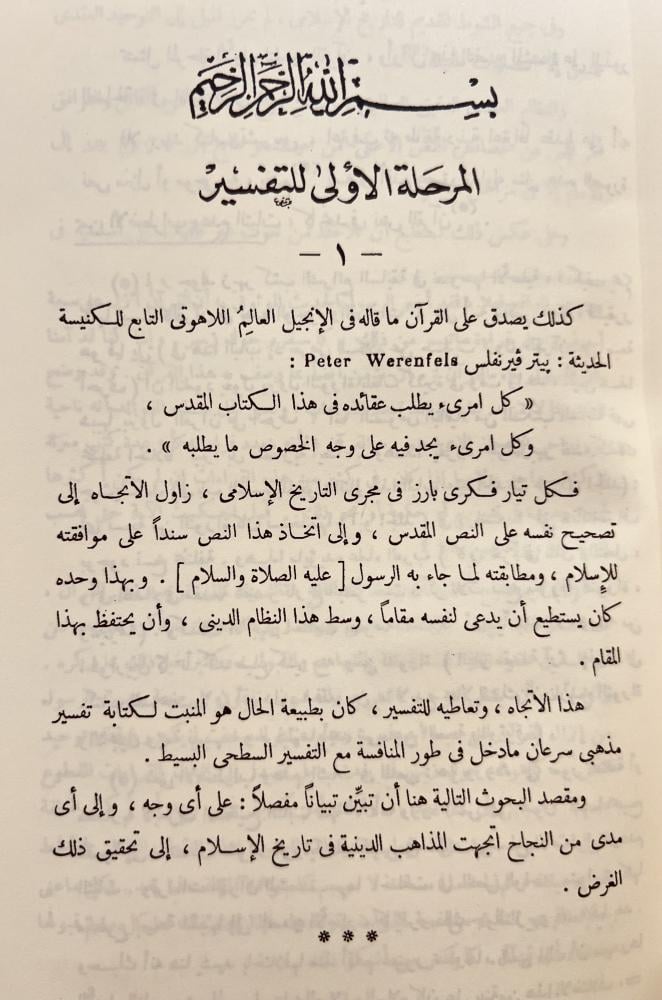 بسم الله الرحمن الرحيم
المرحلة الأولى للتفسير
— ١ —
كذلك يصدق على القرآن ما قاله فى الإنجيل العالِمُ اللاهوتى التابع للكنيسة
الحديثة : پيتر ڤيرنفلس Peter Werenfels :
« كل امرىء يطلب عقائده فى هذا الكتاب المقدس ،
وكل امرىء يجد فيه على وجه الخصوص ما يطلبه » .
فكل تيار فكرى بارز فى مجرى التاريخ الإسلامى ، زاول الاتجاه إلى
تصحيح نفسه على النص المقدس ، وإلى اتخاذ هذا النص سنداً على موافقته
للإسلام ، ومطابقته لما جاء به الرسول [ عليه الصلاة والسلام ] . وبهذا وحده
كان يستطيع أن يدعى لنفسه مقاماً ، وسط هذا النظام الدينى ، وأن يحتفظ بهذا
المقام .
هذا الاتجاه ، وتعاطيه للتفسير ، كان بطبيعة الحال هو المنبت لكتابة تفسير
مذهبى سرعان مادخل فى طور المنافسة مع التفسير السطحى البسيط .
ومقصد البحوث التالية هنا أن تبيِّن تبياناً مفصلاً : على أى وجه ، وإلى أى
مدى من النجاح اتجهت المذاهب الدينية فى تاريخ الإسلام ، إلى تحقيق ذلك
الغرض .
* * *